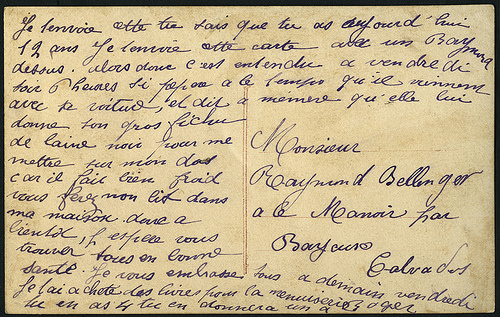 Je t'envoie cette tu sais que tu as aujourd'hui
12 ans Je t'envoie cette carte avec un Raymond
dessus. alors donc c'est entendu a vendredi
soir 6 heures Si papa a le temps qu'il viennent
avec sa voiture, et dit a mémère qu'elle lui
donne son gros fichu
de laine noir pour me
mettre sur mon dos
car il fait bien froid
vous ferez mon lit dans
ma maison. donc a
bientot, J'espère vous
trouver tous en bonne
santé. Je vous embrasse tous a demain vendredi
Je lai achete des livres pour la menuiserie
tu en as 4 tu en donnera un a Roger
Monsieur
Raymond Bellenger
a le Manoir par
Bayeux
Calvados